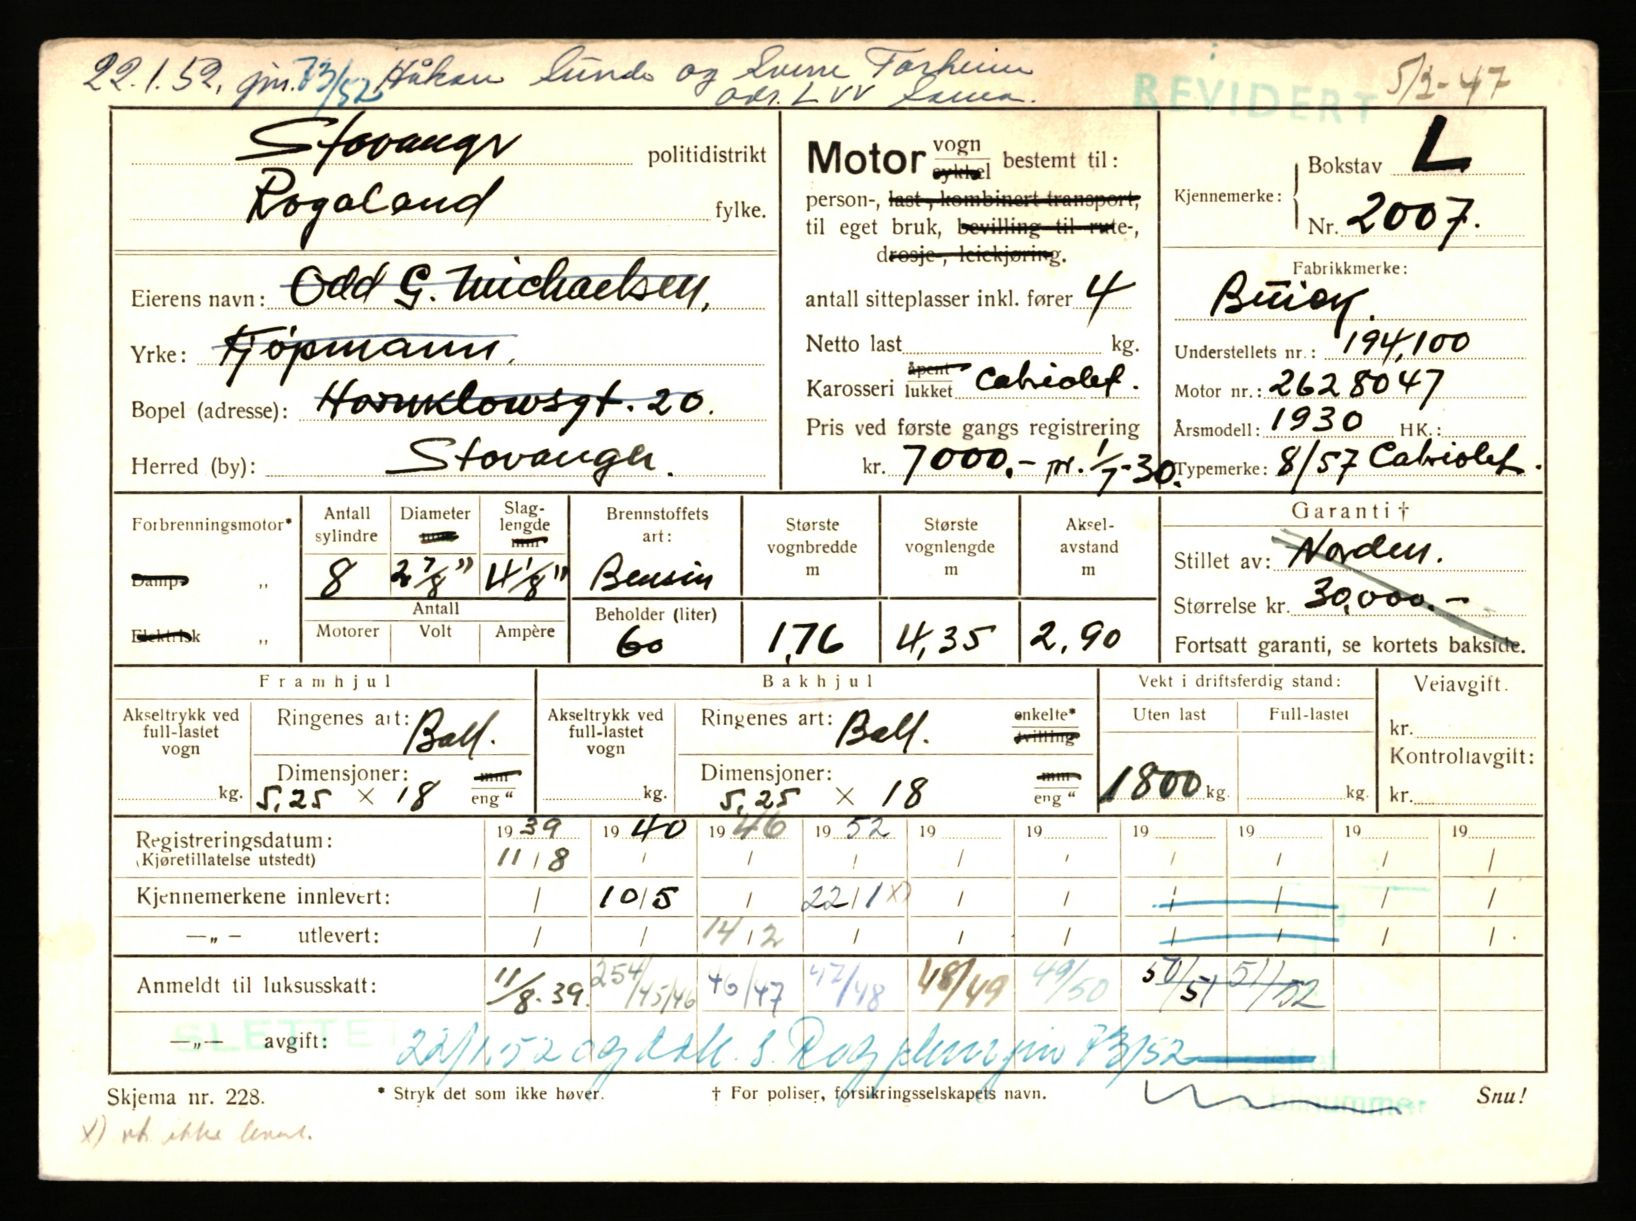 22.1.52. jnr. 73/52 Håkon Sunde og Sverre
adr. L VV
REVIDERT 5/2-47
Stavanger politidistrikt
Rogaland fylke.
Eierens navn: Odd G. Michaelsen,
Yrke: Kjøpmann.
Bopel (adresse): Hornklowsgt. 20.
Herred (by): Stavanger.
Motor vogn sykkel bestemt til:
person-, last-, kombinert transport,
til eget bruk, bevilling til rute-,
drosje-, leiekjøring.
antall sitteplasser inkl. fører 4
Netto last kg.
Karosseri åpent lukket Cabriolet.
Pris ved første gangs registrering
kr. 7000.- pr. 1/7-30.
Kjennemerke: Bokstav L
Nr. 2007.
Fabrikkmerke:
Buick.
Understellets nr.: 194,100
Motor nr.: 2628047
Årsmodell: 1930 HK.:
Typemerke: 8/57 Cabriolet.
Forbrenningsmotor*
Damp- „
Elektrisk „
Antall sylindre
8
Diameter mm
2 7/8"
Slag-lengde mm
4 1/8"
Antall
Motorer Volt Ampère
Brennstoffets art:
Bensin
Beholder (liter)
60
Største vognbredde m
1,76
Største vognlengde m
4,35
Aksel-avstand m
2,90
Garanti †
Stillet av: Norden.
Størrelse kr. 30,000.-
Fortsatt garanti, se kortets bakside.
Framhjul
Akseltrykk ved full-lastet vogn
kg.
Ringenes art: Ball.
Dimensjoner: mm
5,25 × 18 eng "
Bakhjul
Akseltrykk ved full-lastet vogn
kg.
Ringenes art: Ball. enkelte* tvilling
Dimensjoner: mm
5,25 × 18 eng "
Vekt i driftsferdig stand:
Uten last Full-lastet
1800 kg. kg.
Veiavgift.
kr.
Kontrollavgift:
kr.
Registreringsdatum: 1939 1940 1946 1952 19 19 19 19 19 19
(Kjøretillatelse utstedt) 11/8 / / / / / / / / /
Kjennemerkene innlevert: / 10/5 / 22/1 x) / / / / / /
—„— utlevert: / / 14/2 / / / / / / /
Anmeldt til luksusskatt: 11/8-39. 254/45/46 46/47 47/48 48/49 49/50 50/51 51/52
SLETTET
—„— avgift: 22/1.52 73/52
Skjema nr. 228. * Stryk det som ikke høver. † For poliser, forsikringsselskapets navn. bilnummer Snu!
x) ikke levert.